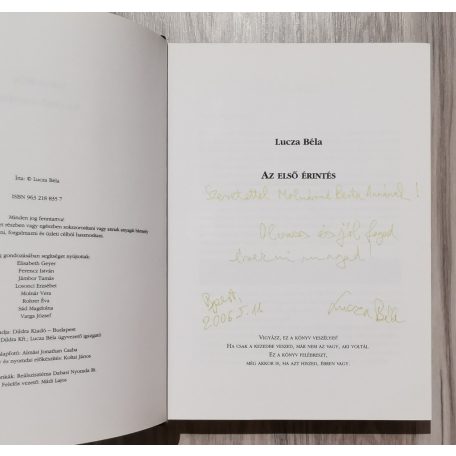 Írta: © Lucza Béla
ISBN 963 218 855 7
Minden jog fenntartva!
részben vagy egészben sokszorosítani vagy annak anyagát bármely
forgalmazni és üzleti célból hasznosítani.
gondozásában segítséget nyújtottak:
Elisabeth Geyer
Ferenczy István
Jámbor Tamás
Losonci Erzsébet
Molnár Vera
Rohrer Éva
Sád Magdolna
Varga József
Dádra Kiadó – Budapest
Dádra Kft.; Lucza Béla ügyvezető igazgató
Almási Jonathan Csaba
és nyomdai előkészítés: Koltai János
Reálszisztéma Dabasi Nyomda Rt.
Felelős vezető: Mádi Lajos
Lucza Béla
AZ ELSŐ ÉRINTÉS
Szeretettel Molnárné Berta Annának!
Olvass és jól fogod
érezni magad!
Bpest,
2006.5.11
Lucza Béla
VIGYÁZZ, EZ A KÖNYV VESZÉLYES!
HA CSAK A KEZEDBE VESZED, MÁR NEM AZ VAGY, AKI VOLTÁL.
EZ A KÖNYV FELÉBRESZT,
MÉG AKKOR IS, HA AZT HISZED, ÉBREN VAGY.